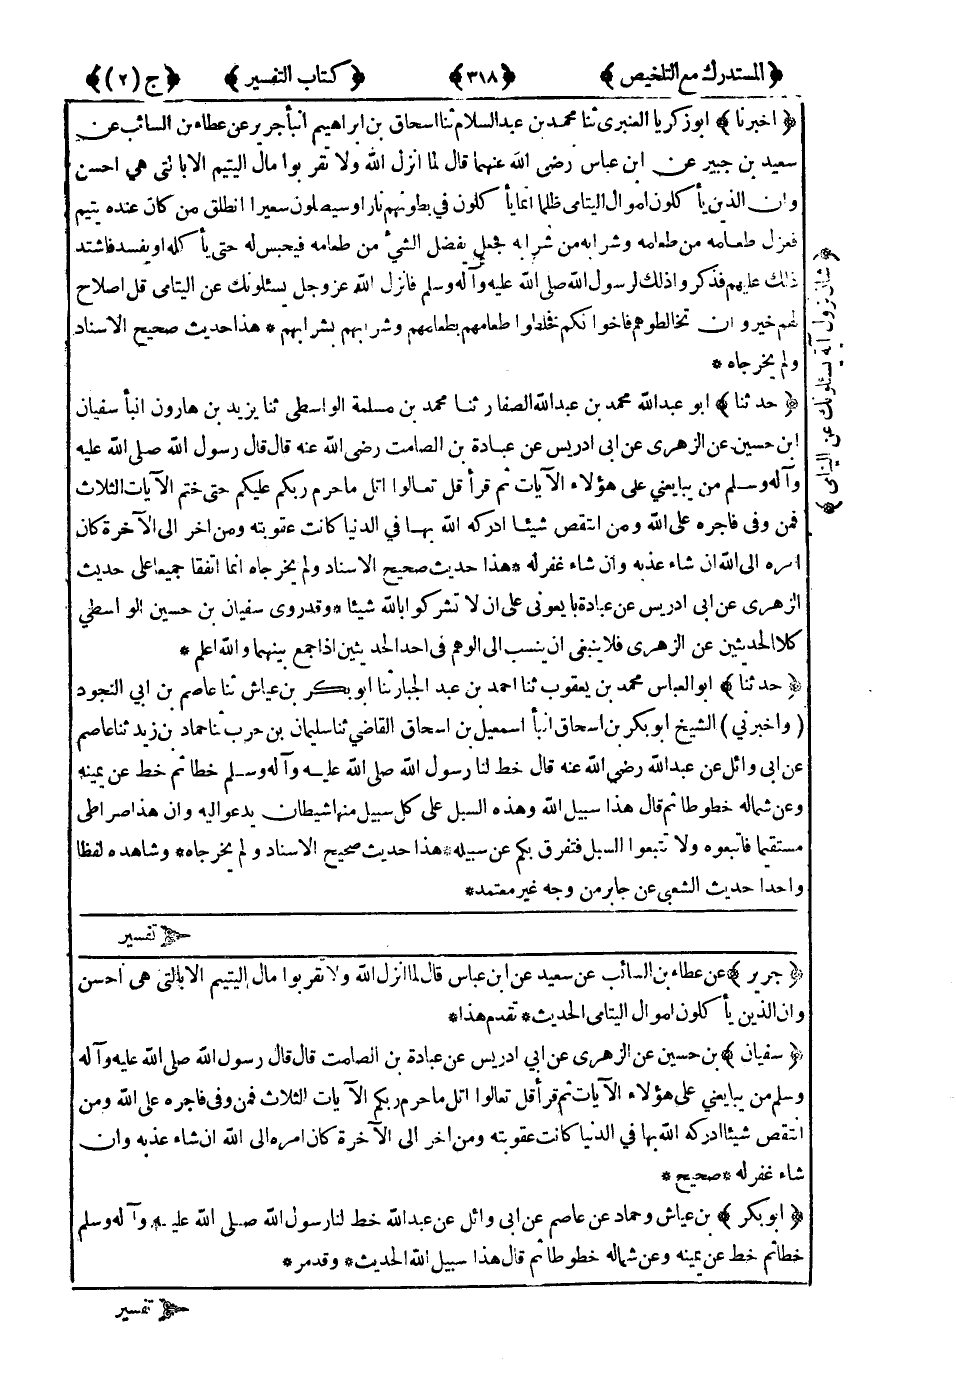 ﴿ المستدرك مع التلخيص ﴾ ﴿ ٣١٨ ﴾ ﴿ كتاب التفسير ﴾ ﴿ ج (٢) ﴾
﴿ اخبرنا ﴾ ابو زكريا العنبرى ثنا محمد بن عبدالسلام ثنا اسحاق بن ابراهيم انبأ جرير عن عطاء بن السائب عن
سعيد بن جبير عن ابن عباس رضى الله عنهما قال لما انزل الله ولا تقربوا مال اليتيم الا بالتى هي احسن
وان الذين يأكلون اموال اليتامى ظلما انما يأكلون في بطونهم نارا وسيصلون سعيرا انطلق من كان عنده يتيم
فعزل طعامه من طعامه وشرابه من شرابه فجعل يفضل الشيء من طعامه فيحبس له حتى يأكله او يفسد فاشتد
ذلك عليهم فذكروا ذلك لرسول الله صلى الله عليه وآله وسلم فانزل الله عز وجل يسئلونك عن اليتامى قل اصلاح
لهم خير وان تخالطوهم فاخوانكم فخلطوا طعامهم بطعامهم وشرابهم بشرابهم * هذا حديث صحيح الاسناد
ولم يخرجاه *
﴿ حدثنا ﴾ ابو عبدالله محمد بن عبدالله الصفار ثنا محمد بن مسلمة الواسطى ثنا يزيد بن هارون انبأ سفيان
ابن حسين عن الزهرى عن ابى ادريس عن عبادة بن الصامت رضى الله عنه قال قال رسول الله صلى الله عليه
وآله وسلم من يبايعني على هؤلاء الآيات ثم قرأ قل تعالوا اتل ما حرم ربكم عليكم حتى ختم الآيات الثلاث
فمن وفى فاجره على الله ومن انتقص شيئا ادركه الله بها في الدنيا كانت عقوبته ومن اخر الى الآخرة كان
امره الى الله ان شاء عذبه وان شاء غفر له * هذا حديث صحيح الاسناد ولم يخرجاه انما اتفقا جميعا على حديث
الزهرى عن ابى ادريس عن عبادة بايعونى على ان لا تشركوا بالله شيئا * وقد روى سفيان بن حسين الواسطي
كلا الحديثين عن الزهرى فلا ينبغى ان ينسب الى الوهم فى احد الحديثين اذا جمع بينهما والله اعلم *
﴿ حدثنا ﴾ ابو العباس محمد بن يعقوب ثنا احمد بن عبد الجبار ثنا ابو بكر بن عياش ثنا عاصم بن ابي النجود
( واخبرني ) الشيخ ابو بكر بن اسحاق انبأ اسمعيل بن اسحاق القاضي ثنا سليمان بن حرب ثنا حماد بن زيد ثنا عاصم
عن ابى وائل عن عبدالله رضي الله عنه قال خط لنا رسول الله صلى الله عليه وآله وسلم خطا ثم خط عن يمينه
وعن شماله خطوطا ثم قال هذا سبيل الله وهذه السبل على كل سبيل منها شيطان يدعو اليه وان هذا صراطى
مستقيما فاتبعوه ولا تتبعوا السبل فتفرق بكم عن سبيله * هذا حديث صحيح الاسناد ولم يخرجاه * وشاهده لفظا
واحدا حديث الشعبى عن جابر من وجه غير معتمد *
﴿ شان نزول آية يسئلونك عن اليتامى ﴾
تفسير
﴿ جرير ﴾ عن عطاء بن السائب عن سعيد عن ابن عباس قال لما انزل الله ولا تقربوا مال اليتيم الا بالتى هى احسن
وان الذين يأكلون اموال اليتامى الحديث * تقدم هذا *
﴿ سفيان ﴾ بن حسين عن الزهرى عن ابي ادريس عن عبادة بن الصامت قال قال رسول الله صلى الله عليه وآله
وسلم من يبايعني على هؤلاء الآيات ثم قرأ قل تعالوا اتل ما حرم ربكم الآيات الثلاث فمن وفى فاجره على الله ومن
انتقص شيئا ادركه الله بها في الدنيا كانت عقوبته ومن اخر الى الآخرة كان امره الى الله ان شاء عذبه وان
شاء غفر له * صحيح *
﴿ ابو بكر ﴾ بن عياش وحماد عن عاصم عن ابى وائل عن عبدالله خط لنا رسول الله صلى الله عليه وآله وسلم
خطا ثم خط عن يمينه وعن شماله خطوطا ثم قال هذا سبيل الله الحديث * وقد مر *
تفسير